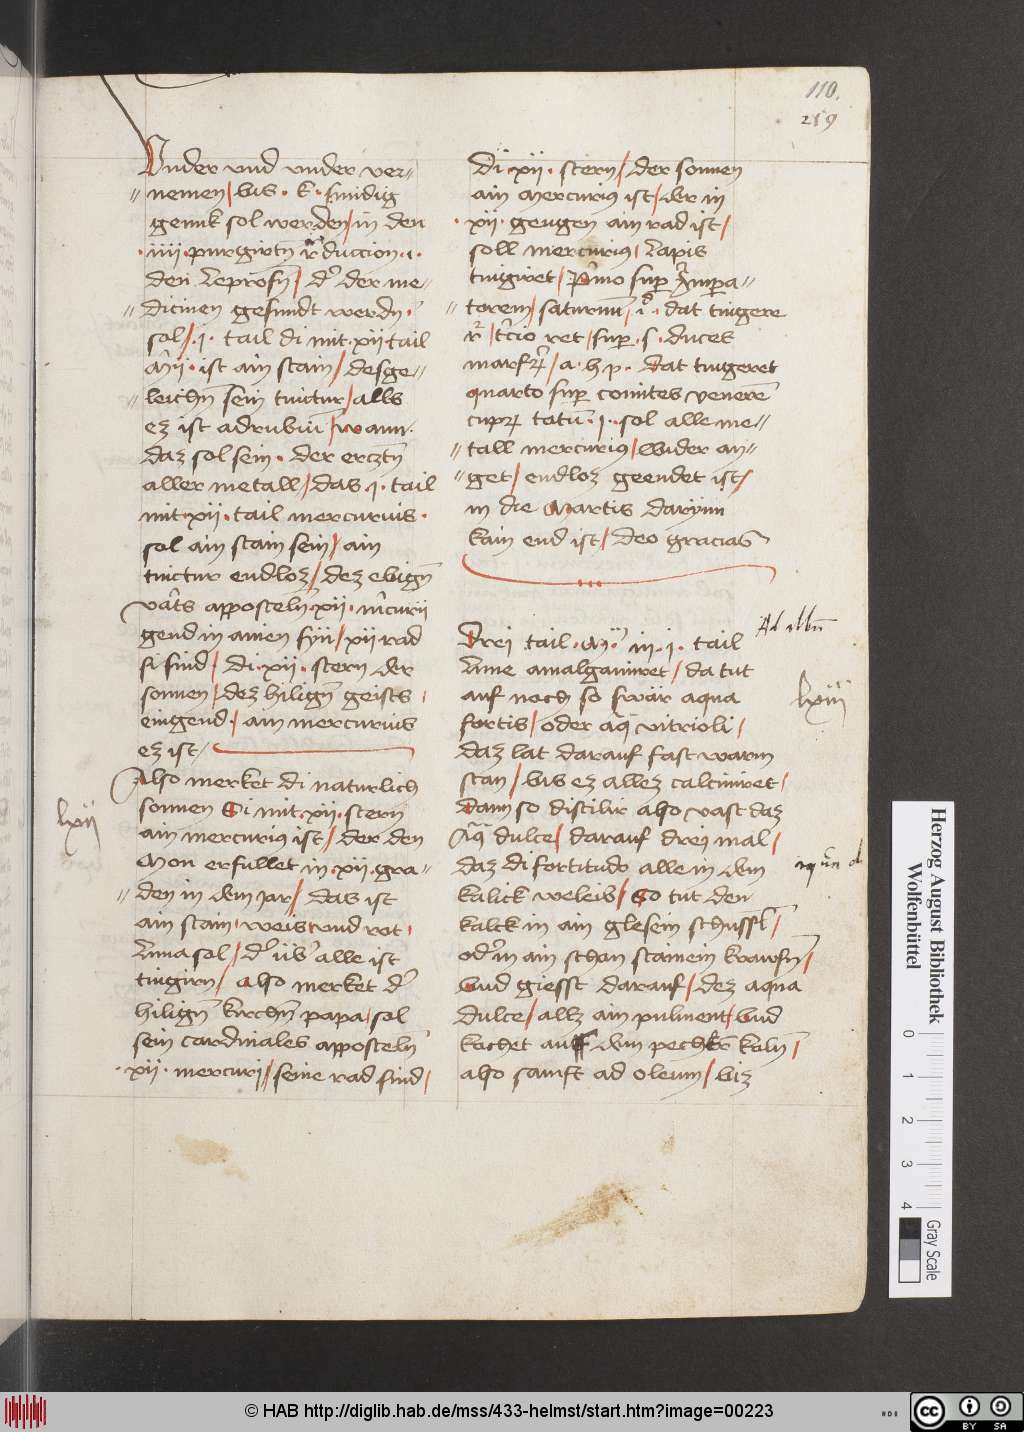 110.
219
Vnder vnd vnder ver-
nemen / bis · k · smidig
genuk sol werden / in den
· iiii · purgirtn r̄duccion · 1 ·
den Leprosn̄ / d' der me-
dicinen gesundt werdn̄ ·
sol / · 1 · tail di mit · xii · tail
ist ain stain / desge-
leichn̄ sein tinctur / alls
ez ist adrubiū / wann ·
daz sol sein · der ercztn̄
aller metall / das · 1 · tail
mit · xii · tail mercurius ·
sol ain stain sein / ain
tinctur endloz / dez ebign̄
apposteln · xii · m̄curii
gend in ainen / xii rad
si sind / di · xii · stern der
sonnen / dez hilign̄ geists /
eingend · / ain mercurius
ez ist /
Also merket di naturlich
sonnen Di mit · xii · stern
ain mercurius ist / der den
Mon erfullet in · xii · gra-
den in dem Jar / das ist
ain stain · weis vnd rot ·
Luna sol / d' üb' alle ist
tingirn / also merket d'
hilign̄ kirchn̄ papa / sol
sein cardinales apposteln̄
· xii · mercuri / seine rad sind /
lxii
di · xii · stern / der sonnen
ain Mercurius ist / der in
· xii · geugen ain rad ist /
soll mercurius / Lapis
tingiret / p̄mo sup̄ Imp̄a-
torem / saturnū / · i° · dat tingere
/ t̄cio ret / sup̄ · s · duces
/ a · h p · dat tingeret
quarto sup̄ comites venerē
totū · 1 · sol alle me-
tall mercurius / wider an-
get / endloz geendet ist /
in die Martis darynn
kain end ist / deo gracias
Ad albū
Drei tail · · in · 1 · tail
Lune amalgamiret / da tut
auf noch so swär aqua
fortis / oder aq̄ vitrioli /
daz lat darauf fast warm
stan / bis ez allez calciniret /
Dann so distilir also vast daz
Aq̄ dulce / darauf drei mal /
daz di fortitudo alle in dem
kalick weleib / So tut den
kalck in ain glesein schussl /
od' in ain schon stainein /
Vnd giesst darauf / dez aqua
dulce / allz ain pulment / vnd
kochet auff dem koln̄ /
also samft ad oleum / biz
lxiii
Herzog August Bibliothek
Wolfenbüttel
0 1 2 3 4
Gray Scale
© HAB http://diglib.hab.de/mss/433-helmst/start.htm?image=00223
HAB
cc BY SA